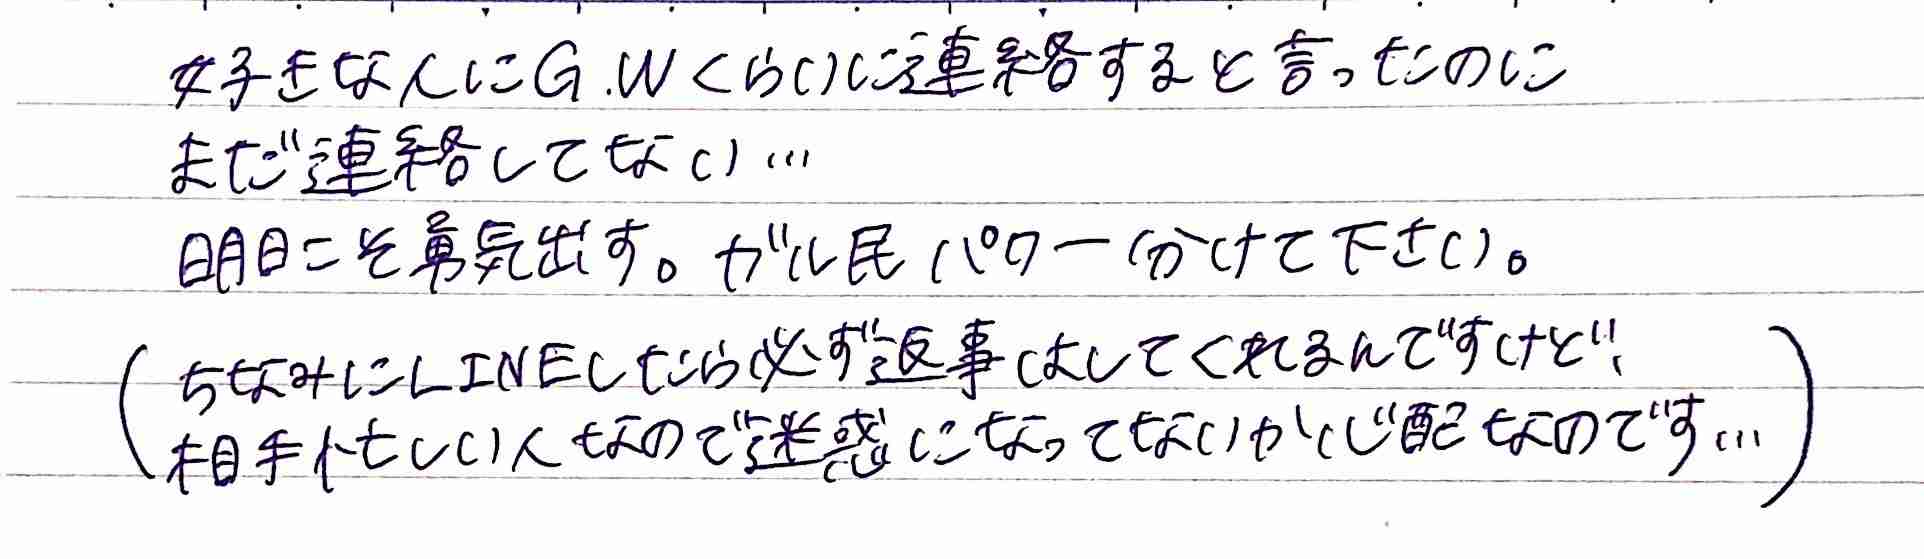 好きな人にG.Wくらいに連絡すると言ったのに
まだ連絡してない…
明日こそ勇気出す。ガル民パワー分けて下さい。
(ちなみにLINEしたら必ず返事はしてくれるんですけど、
相手忙しい人なので迷惑になってないか心配なのです…)